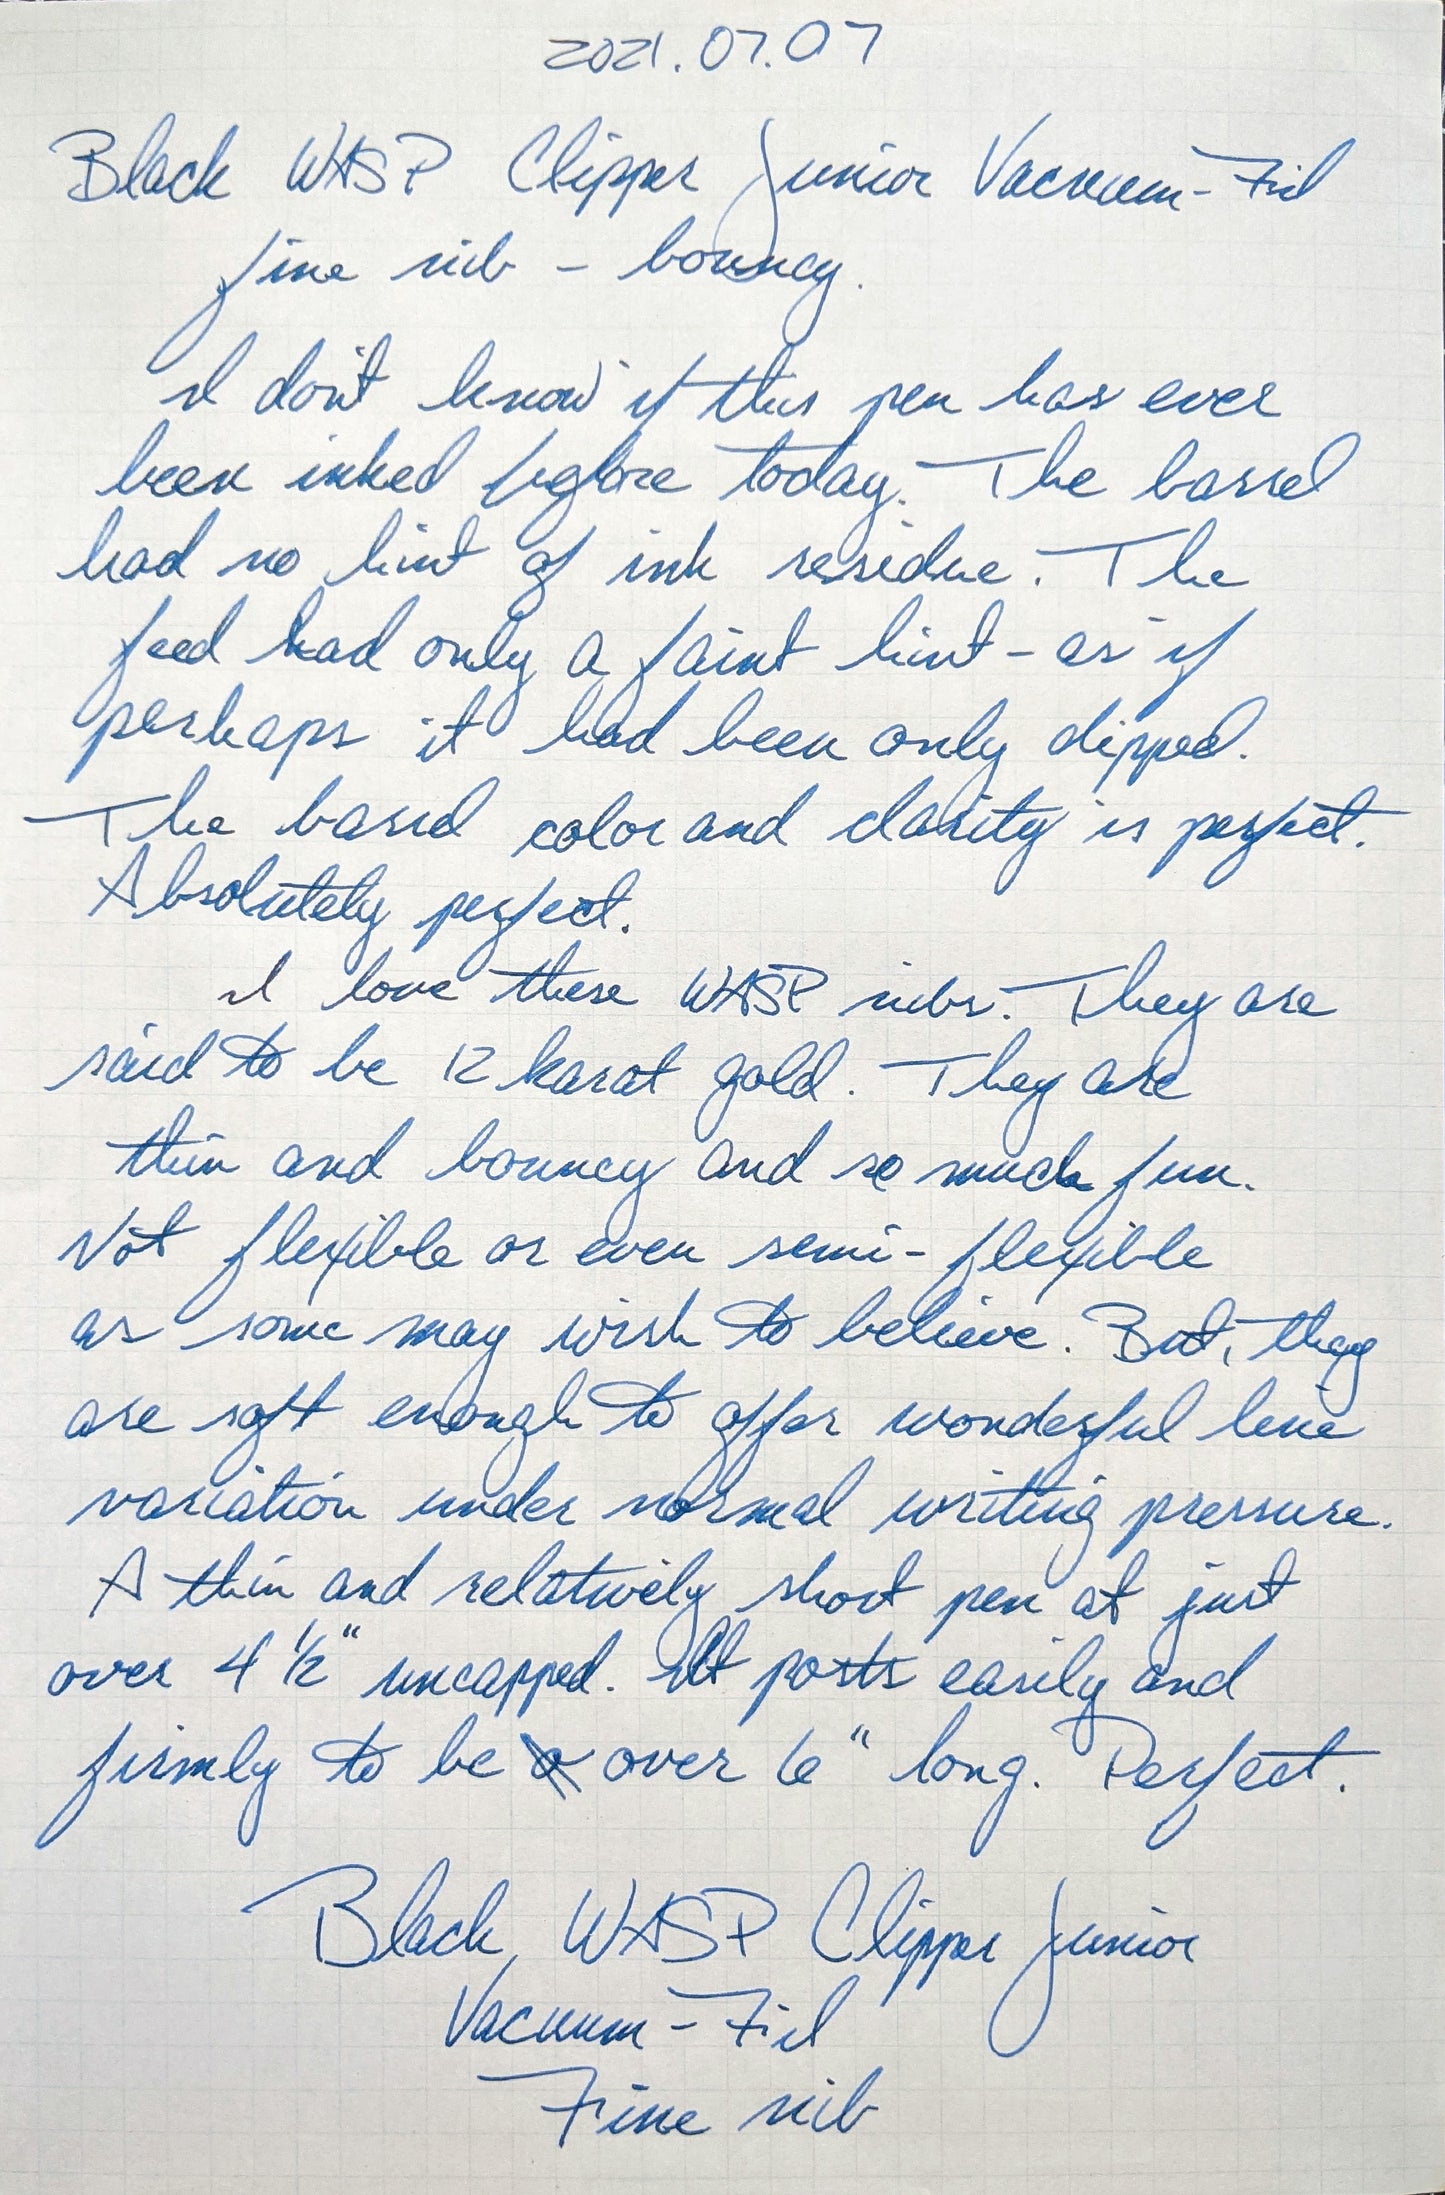 2021.07.07
Black WASP Clipper Junior Vacuum-Fil
fine nib - bouncy.
I don't know if this pen has ever
been inked before today. The barrel
had no hint of ink residue. The
feed had only a faint hint - as if
perhaps it had been only dipped.
The barrel color and clarity is perfect.
Absolutely perfect.
I love these WASP nibs. They are
said to be 12 karat gold. They are
thin and bouncy and so much fun.
Not flexible or even semi-flexible
as some may wish to believe. But, they
are soft enough to offer wonderful line
variation under normal writing pressure.
A thin and relatively short pen at just
over 4 1/2" uncapped. It posts easily and
firmly to be over 6" long. Perfect.
Black WASP Clipper Junior
Vacuum-Fil
Fine nib